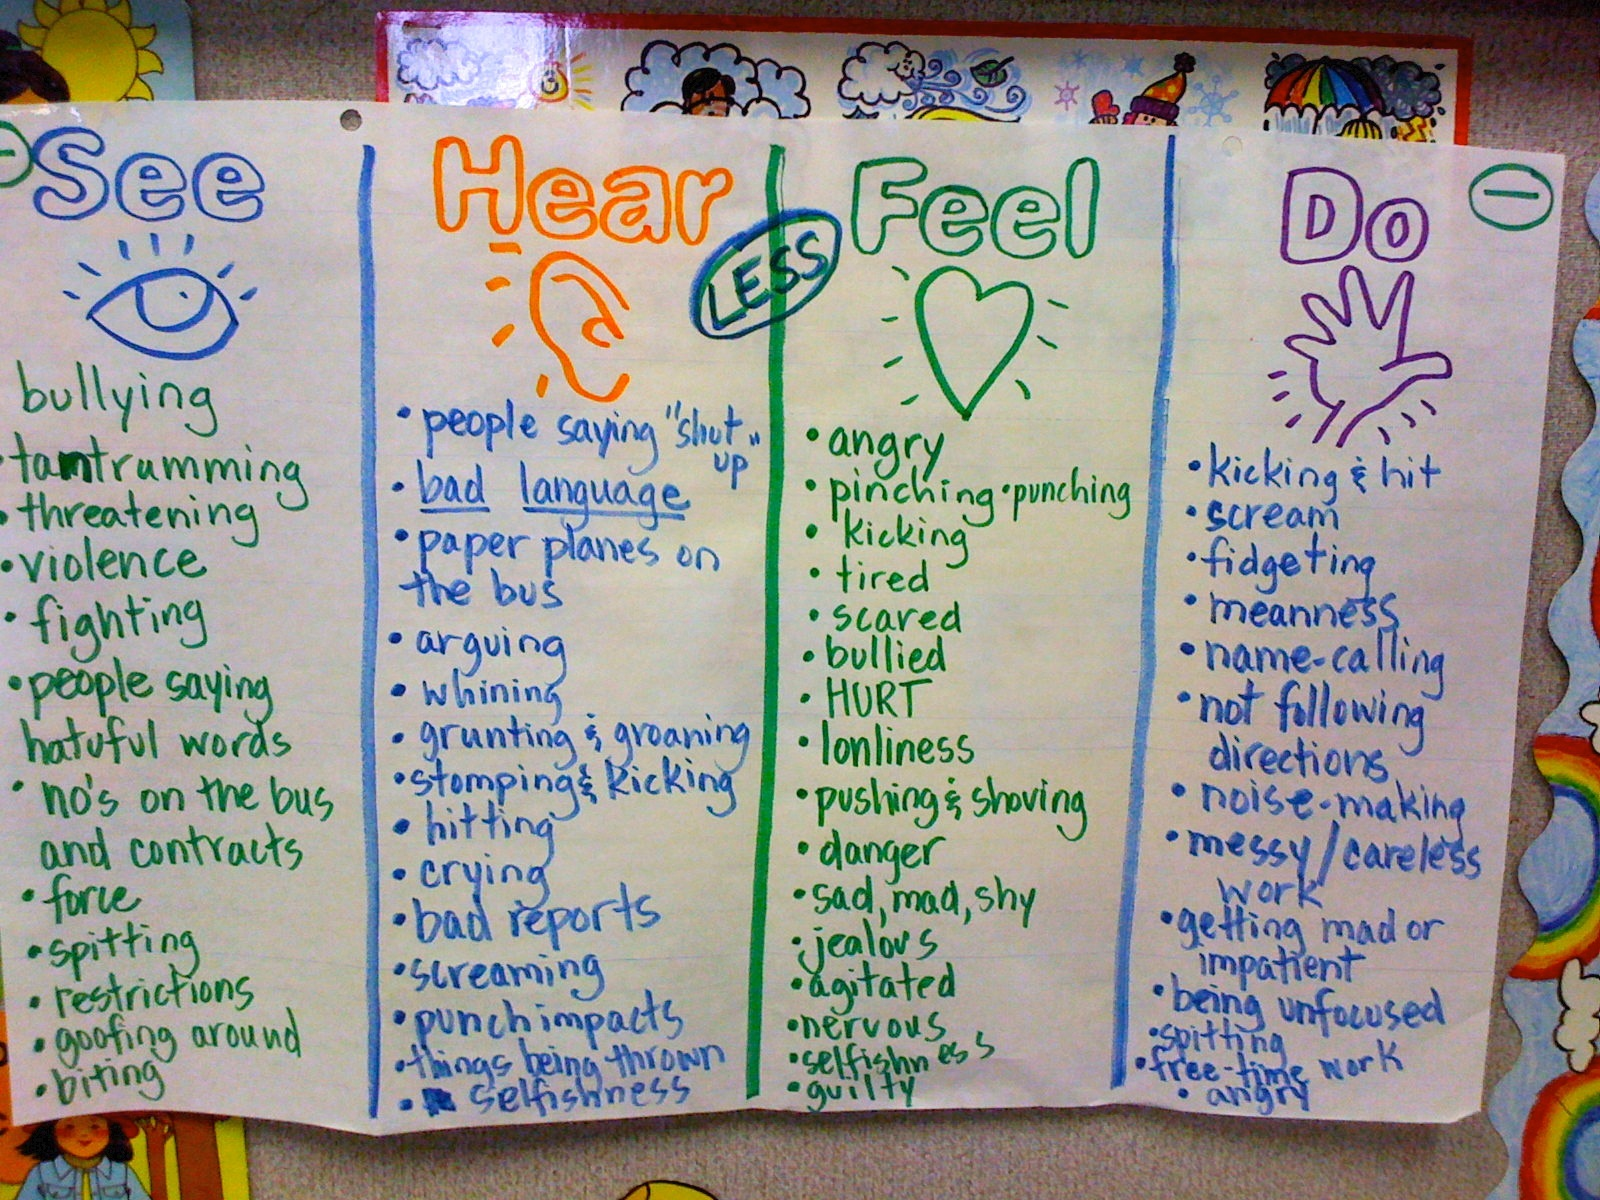 See
bullying
• tamtrumming
• threatening
• violence
• fighting
• people saying
hatuful words
• no's on the bus
and contracts
• force
• spitting
• restrictions
• goofing around
• biting
Hear
• people saying "shut
up"
• bad language
• paper planes on
the bus
• arguing
• whining
• grunting & groaning
• stomping & kicking
• hitting
• crying
• bad reports
• screaming
• punch impacts
• things being thrown
• selfishness
LESS
Feel
• angry
• pinching • punching
• kicking
• tired
• scared
• bullied
• HURT
• lonliness
• pushing & shoving
• danger
• sad, mad, shy
• jealous
• agitated
• nervous
• selfishness
• guilty
Do
• kicking & hit
• scream
• fidgeting
• meanness
• name-calling
• not following
directions
• noise-making
• messy/careless
work
• getting mad or
impatient
• being unfocused
• spitting
• free-time work
• angry